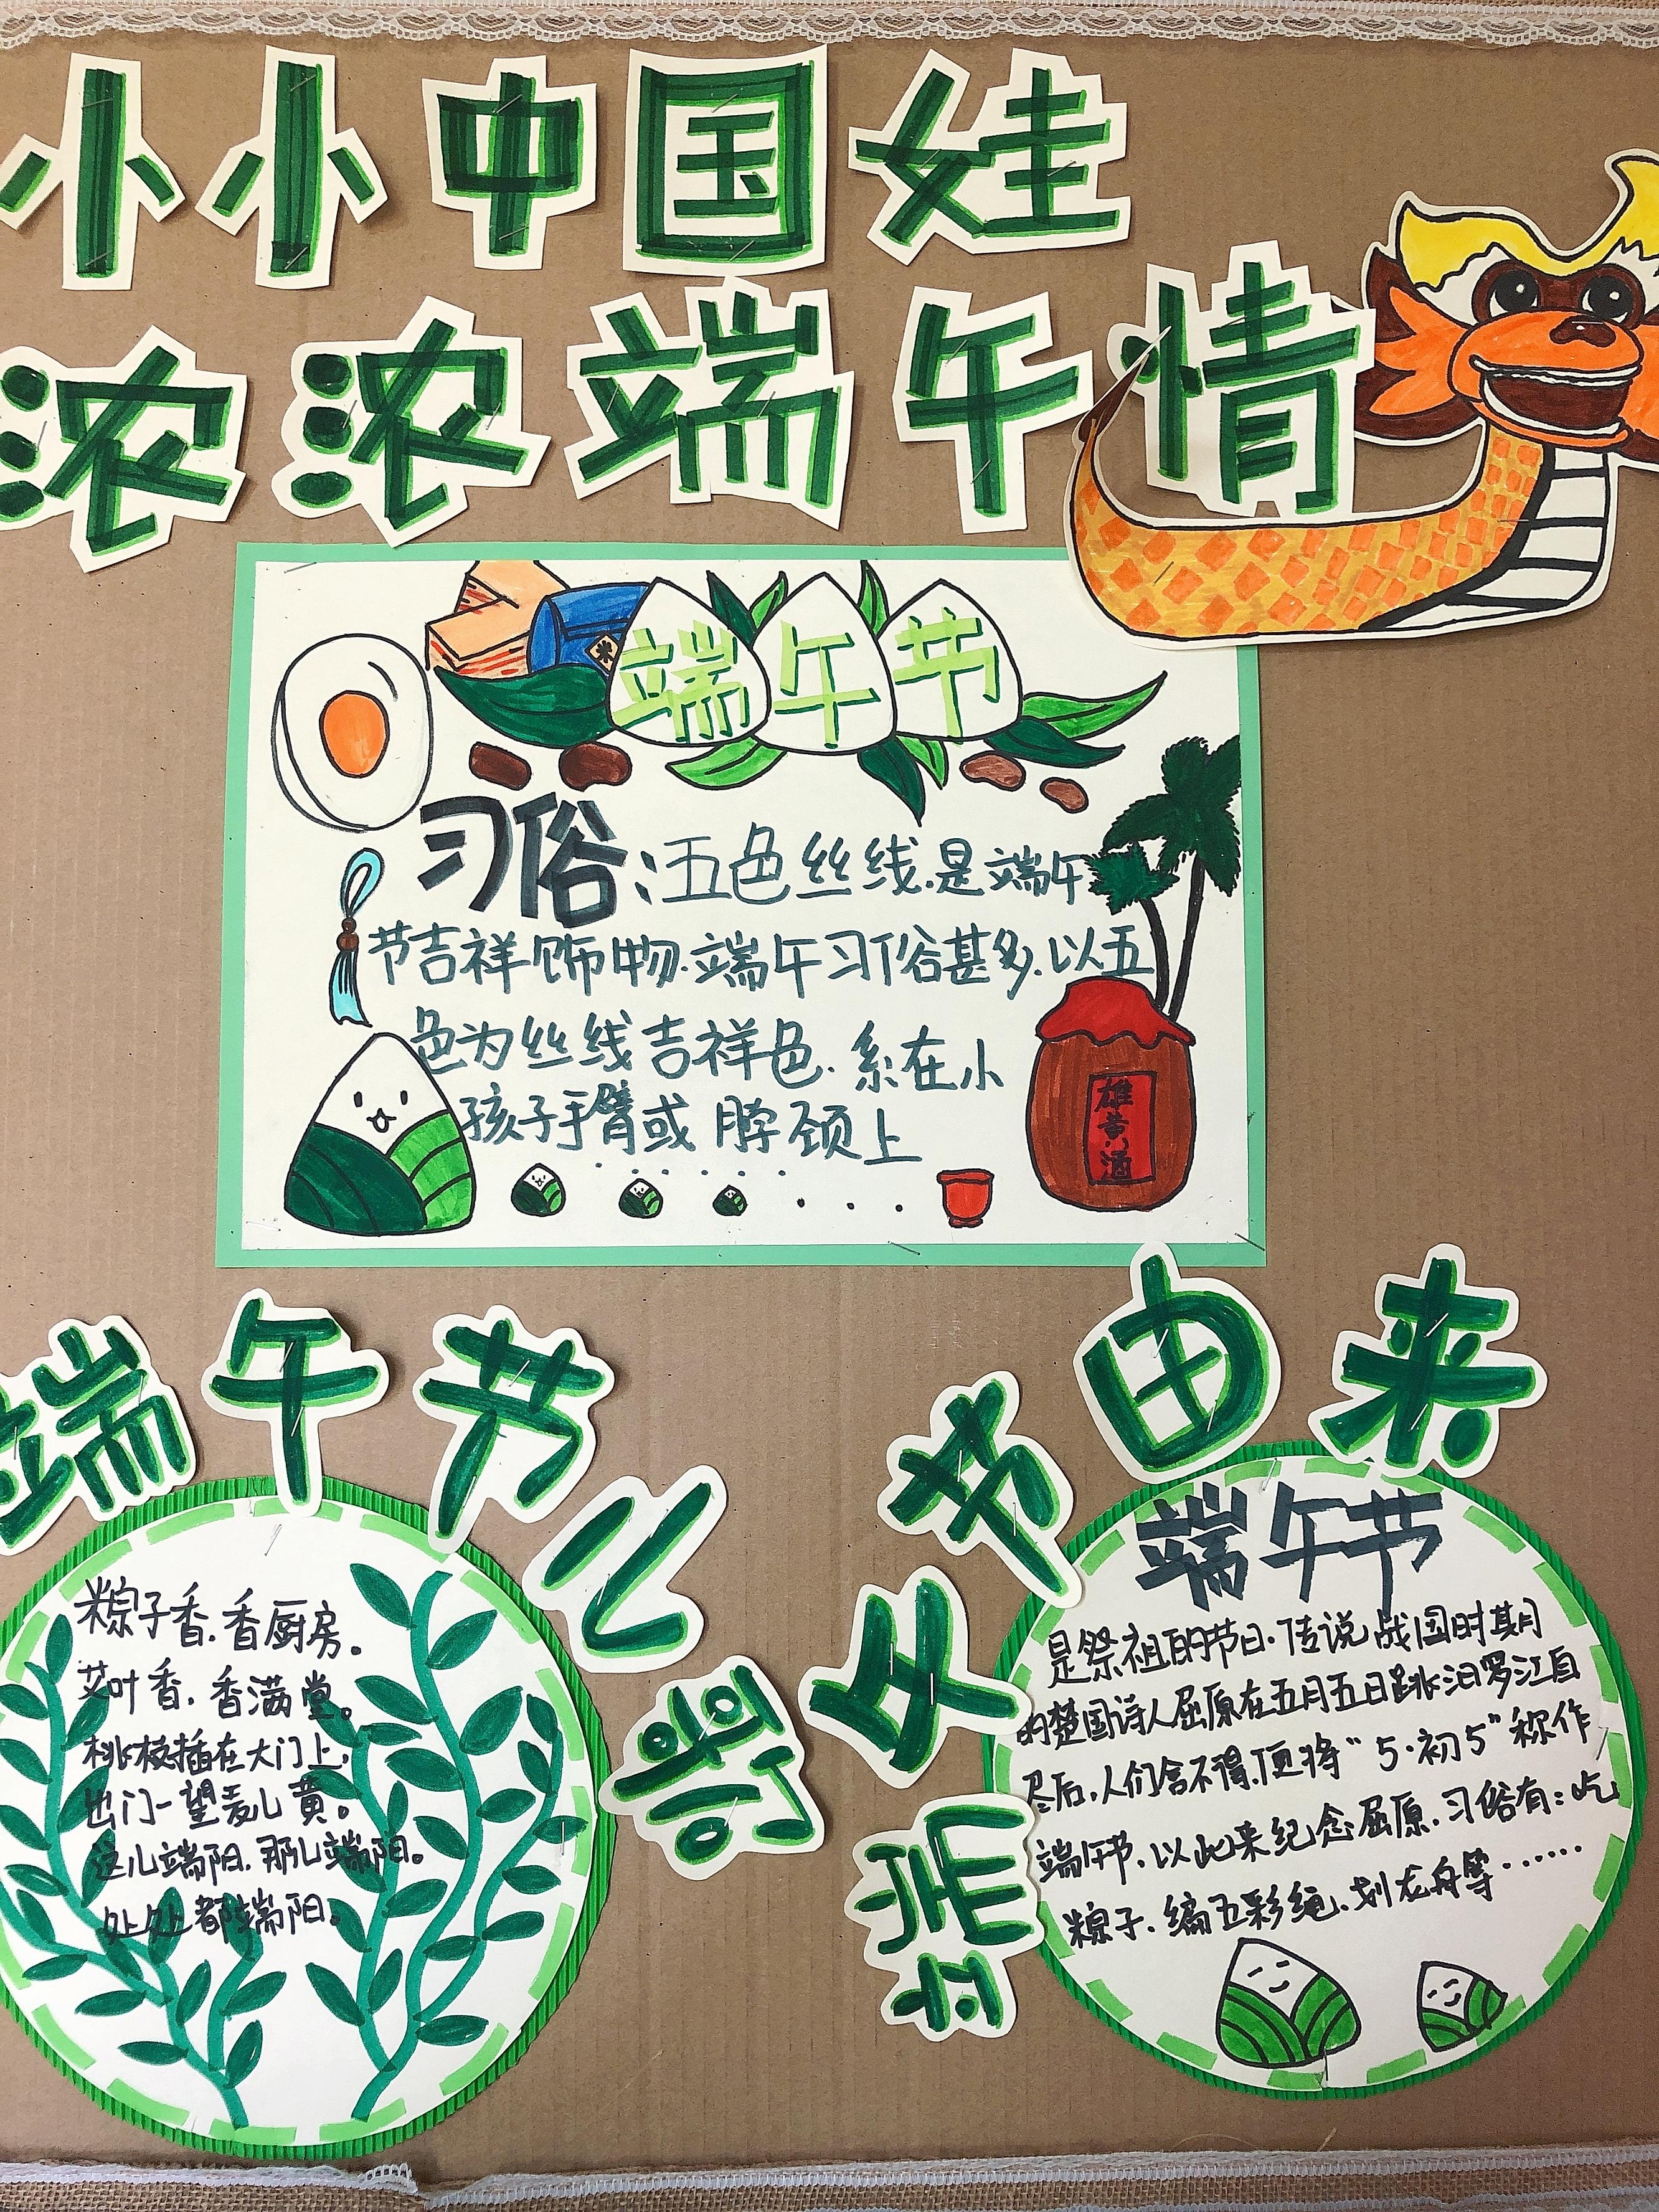 小小中国娃
浓浓端午情
端午节
习俗:五色丝线.是端午
节吉祥饰物.端午习俗甚多.以五
色为丝线吉祥色.系在小
孩子手臂或脖颈上
雄黄酒
米
端午节儿歌
粽子香.香厨房。
艾叶香.香满堂。
桃枝插在大门上,
出门一望麦儿黄。
这儿端阳.那儿端阳。
处处都端阳。
端午节由来
端午节
是祭祖的节日.传说战国时期
的楚国诗人屈原在五月五日跳汨罗江自
尽后,人们舍不得.便将“5.初5”称作
端午节.以此来纪念屈原.习俗有:吃
粽子.编五彩绳.划龙舟等……